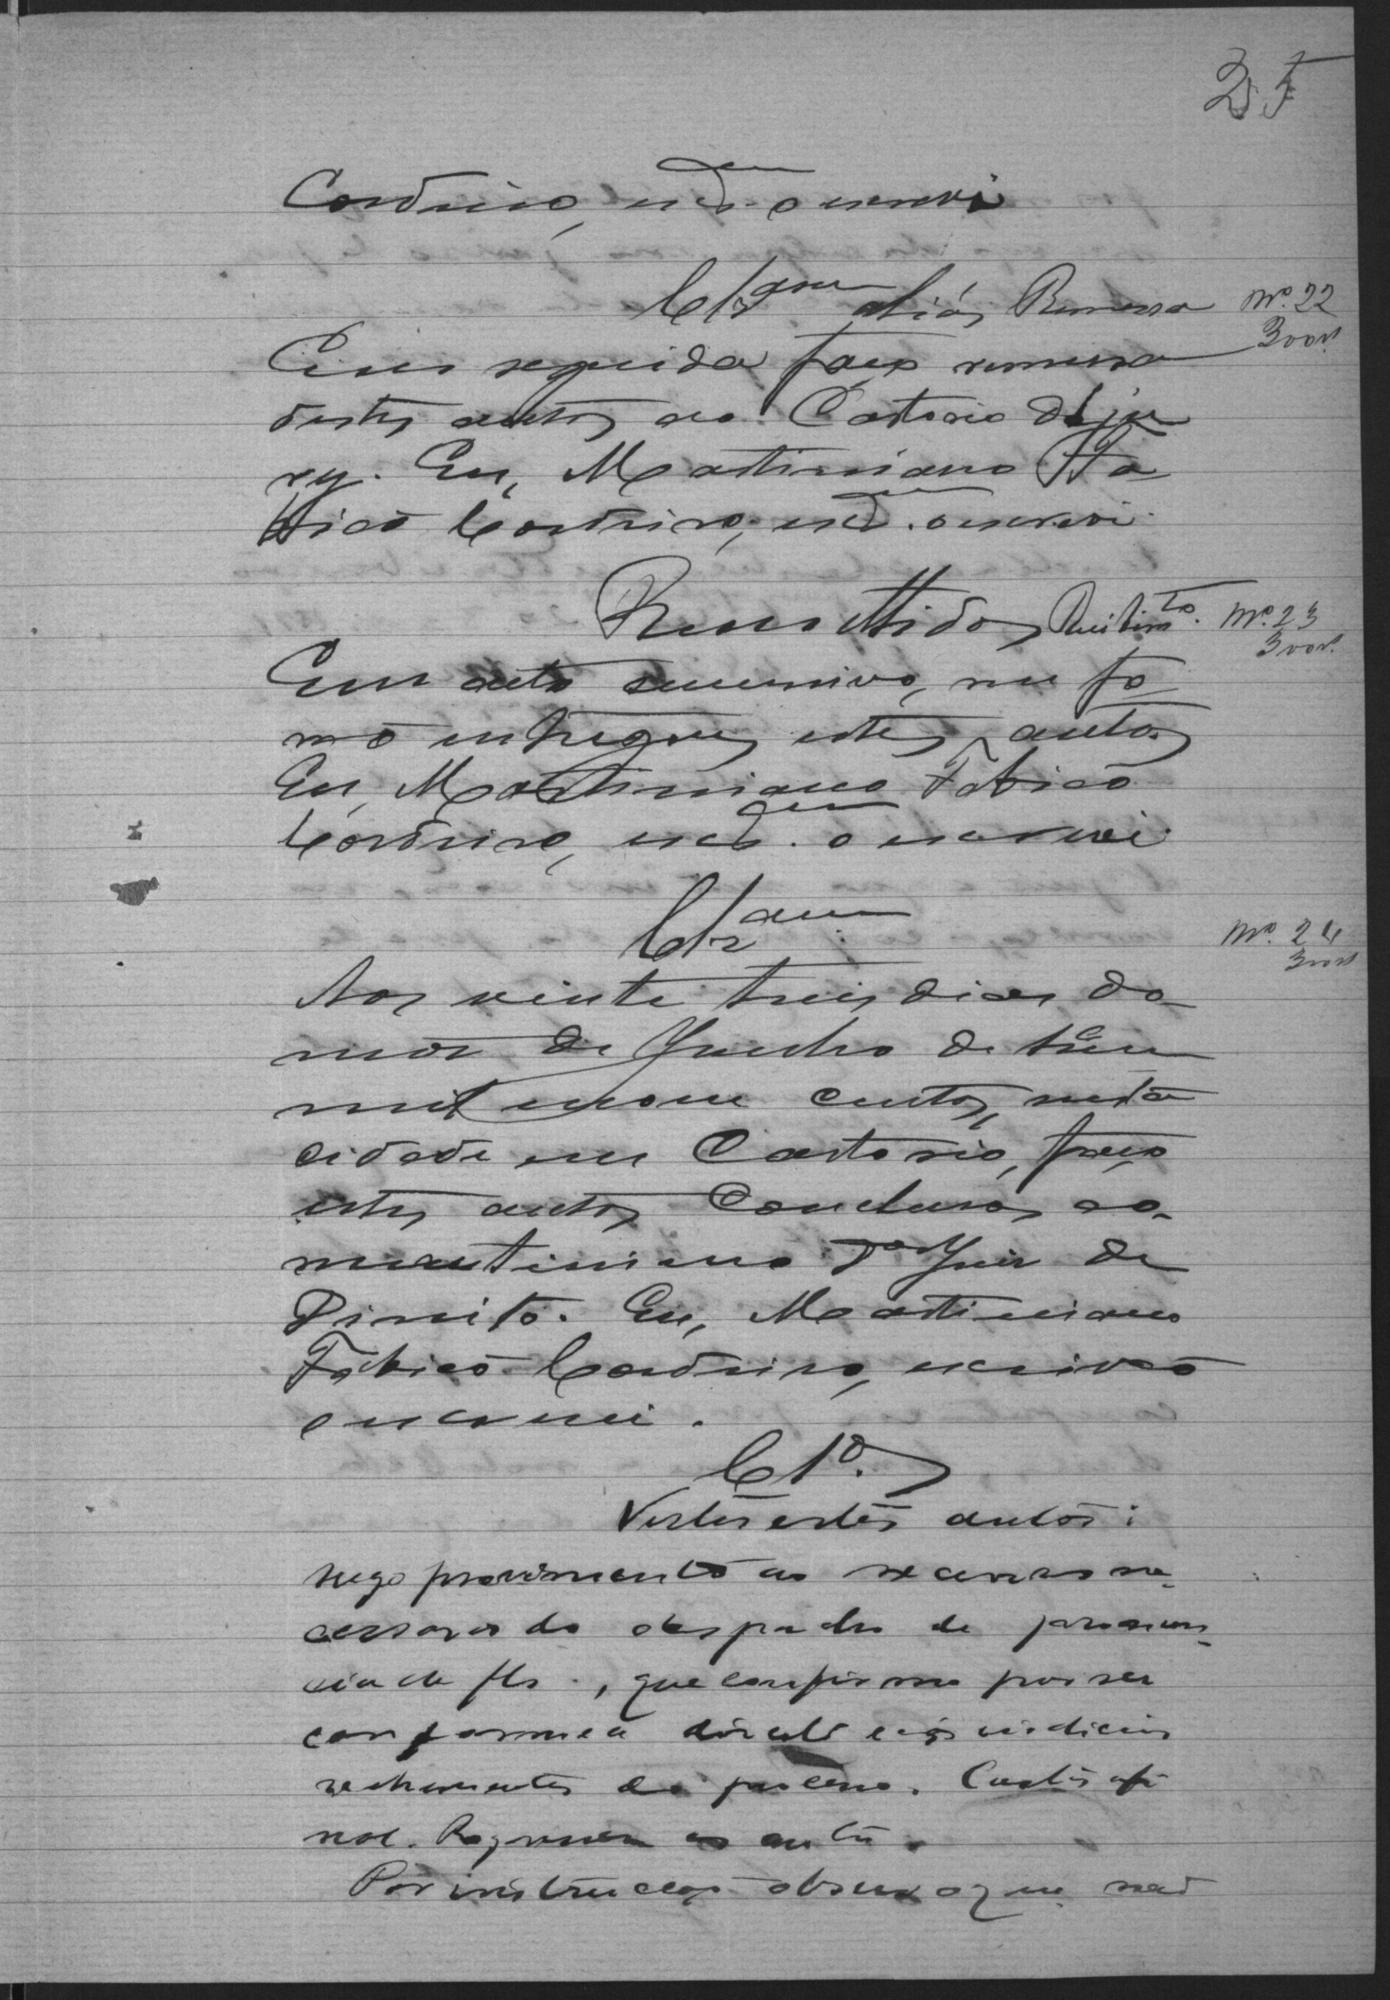 25
Cordeiro, escrivam o escrevi
Clsam aliás Remessa Nº 22
300 rs
Em seguida faço remessa
destes autos ao Cartorio do ju
ry. Eu, Martiniano Fa
bicio Cordeiro, escrivam o escrevi.
Remettidos Recebimto. Nº 23
300 rs.
Em acto successivo, me fo
rão entregues estes autos
Eu, Martiniano Fabicio
Cordeiro, escrivam o escrevi.
Clsam Nº 24
300 rs
Aos vinte treis dias do
mez de Junho de
mil e nove centos, nesta
cidade em Cartorio, faço
estes autos Conclusos ao
Juiz de
Direito. Eu, Martiniano
Fabicio Cordeiro, escrivão
o escrevi.
Clo.
Vistos estes autos:
nego provimento ao recurso ne
cessario do despacho de pronun
cia de fls., que confirmo por ser
conforme a direito e aos indicios
vehementes do processo. Custas afi
nal. Regressem os autos.
Por instrucção observo que não